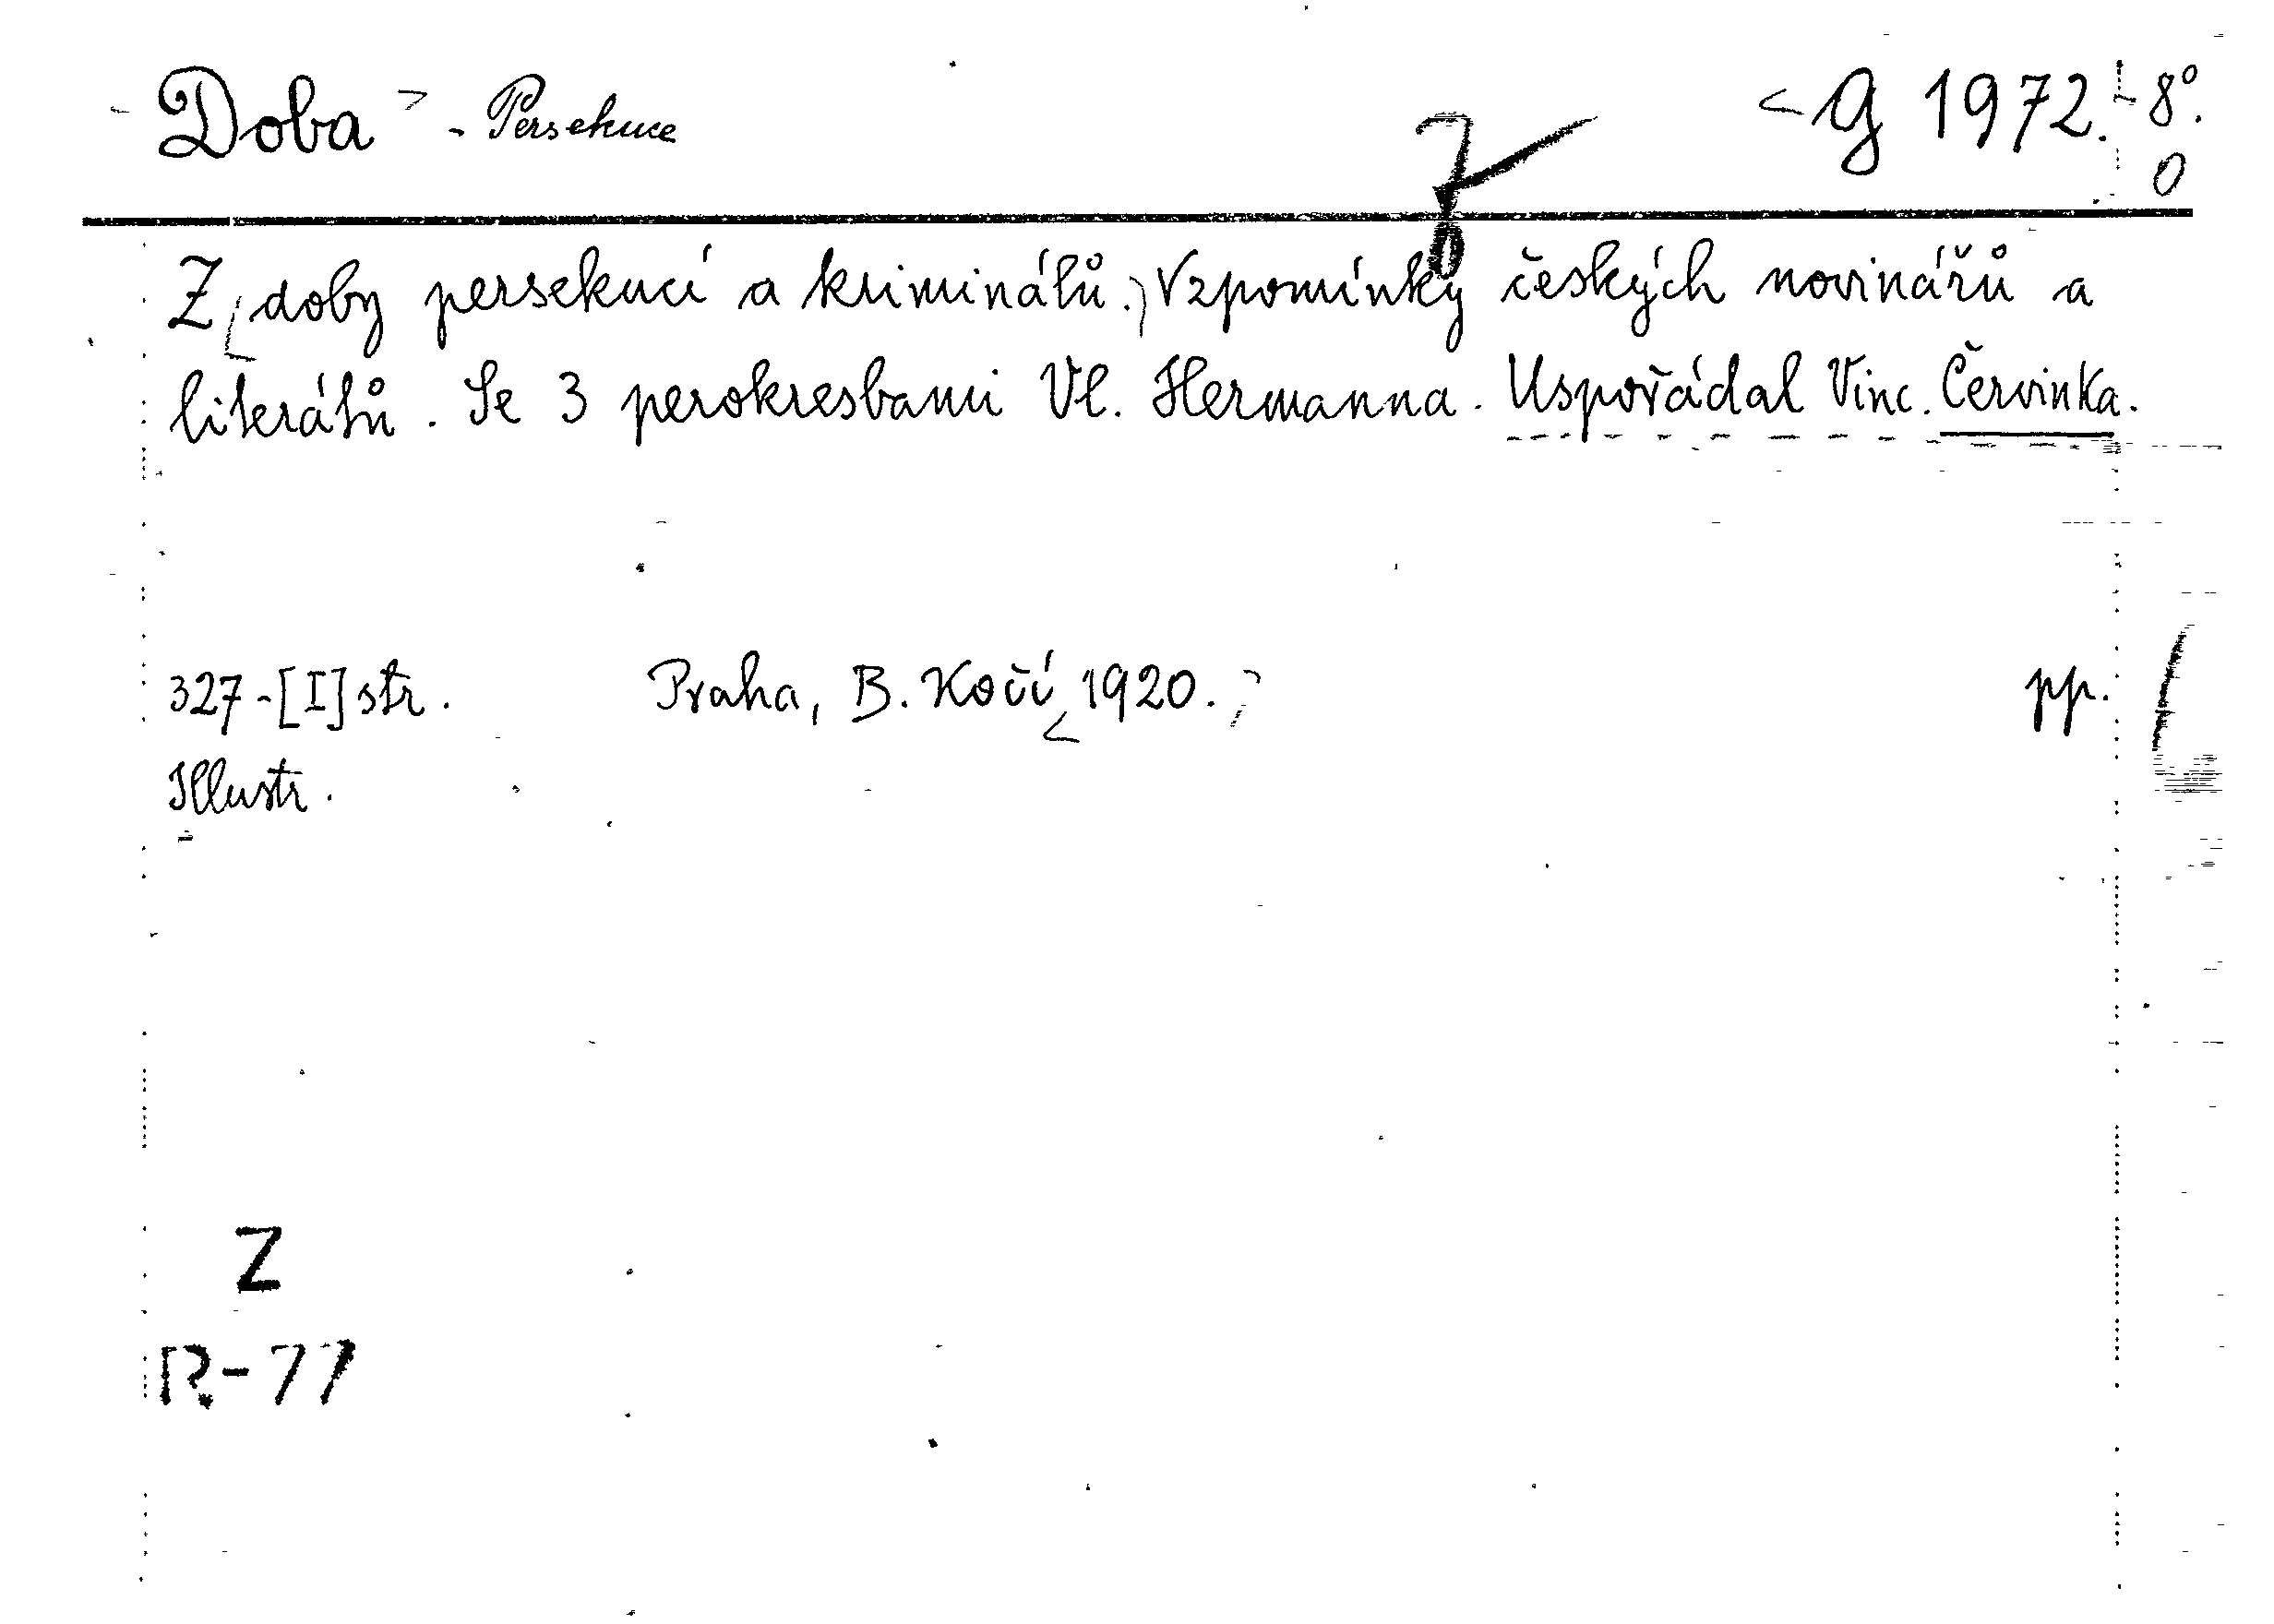 Doba - Persekuce g 1972. 8°.
0
Z doby persekucí a kriminálů. Vzpomínky českých novinářů a
literátů. Se 3 perokresbami Vl. Hermanna. Uspořádal Vinc. Červinka.
327-[I] str. Praha, B. Kočí 1920. pp.
Illustr.
Z
R-77